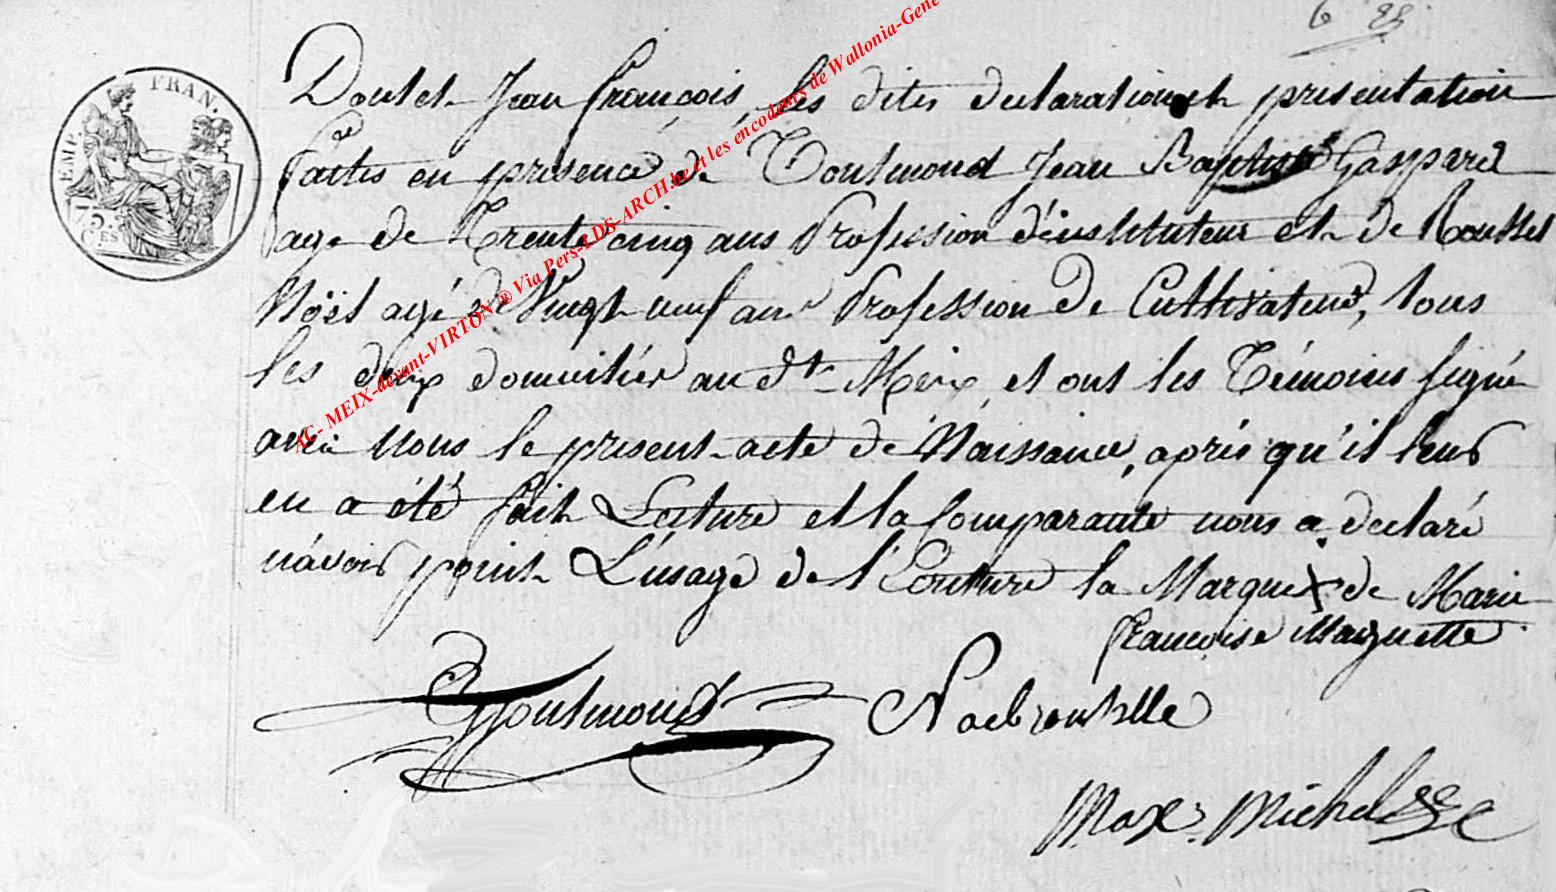 6 22
EMP. FRAN.
75 CES
Doulet Jean françois, les dites declaration et presentation
faites en presence de Toutmond Jean Baptiste Gaspard
age de Trente cinq ans Profession d'instituteur et de Roussel
Noël agé de Vingt neuf ans Profession de Cultivateur, tous
les deux domiciliés au dt Meix, et ont les Témoins signé
avec nous le present acte de Naissance, aprés qu'il leur
en a été fait Lecture et la Comparante nous a declaré
n'avoir point L'usage de l'Ecriture la Marque X de Marie
françoise Marguette
Toutmond Noel rousselle
Max. Michel
AC- MEIX-devant-VIRTON ® Via Pers-LDS-ARCH.be et les encodeurs de Wallonia-Gene